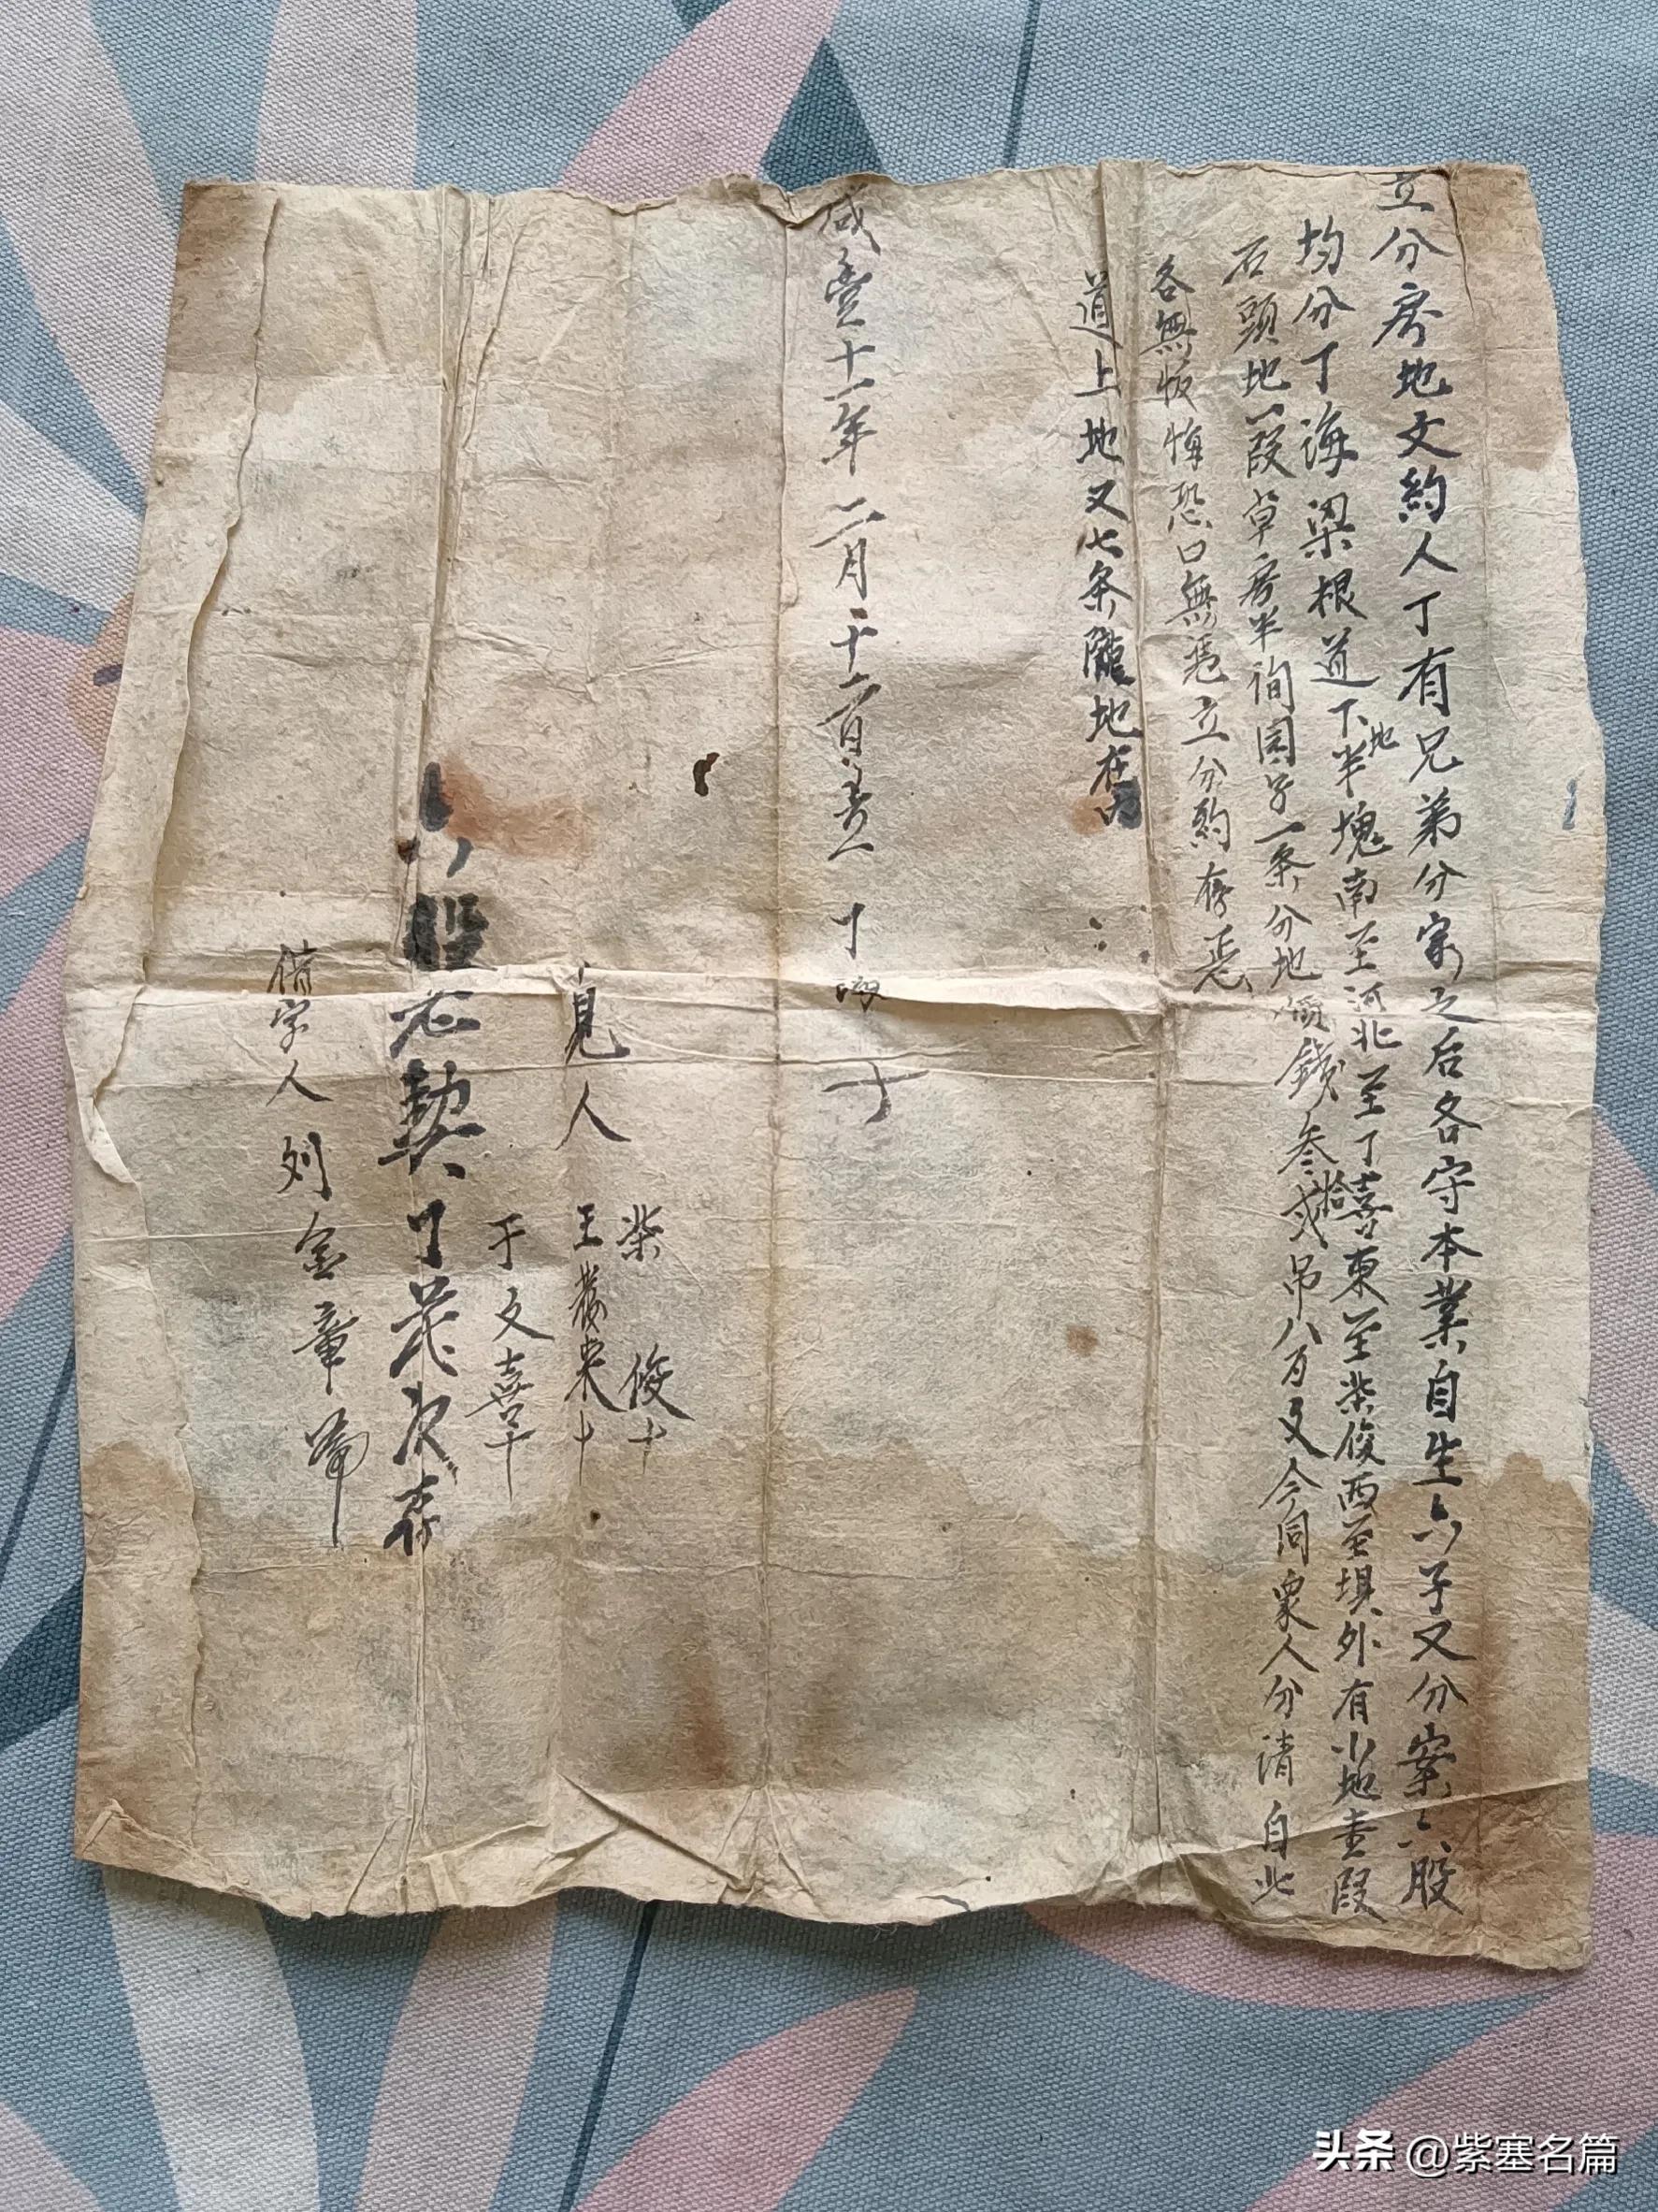 立分房地文約人丁有兄弟分家之后各守本業自生六子又分案六股
均分丁海梁根道下地半塊南至河北至丁喜東至柴俊西至垻外有小地壹段
石頭地一段草房半间園子一条分地價錢叁拾弍吊八百文今同衆人分清自此
各無恢悔恐口無憑立分約存炤
道上地又七条隴地在内
咸豊十一年二月二十六日立 丁海十
柴俊十
見人 王發荣十
于文喜十
老契丁茂
借字人 刘金章
头条 @紫塞名篇